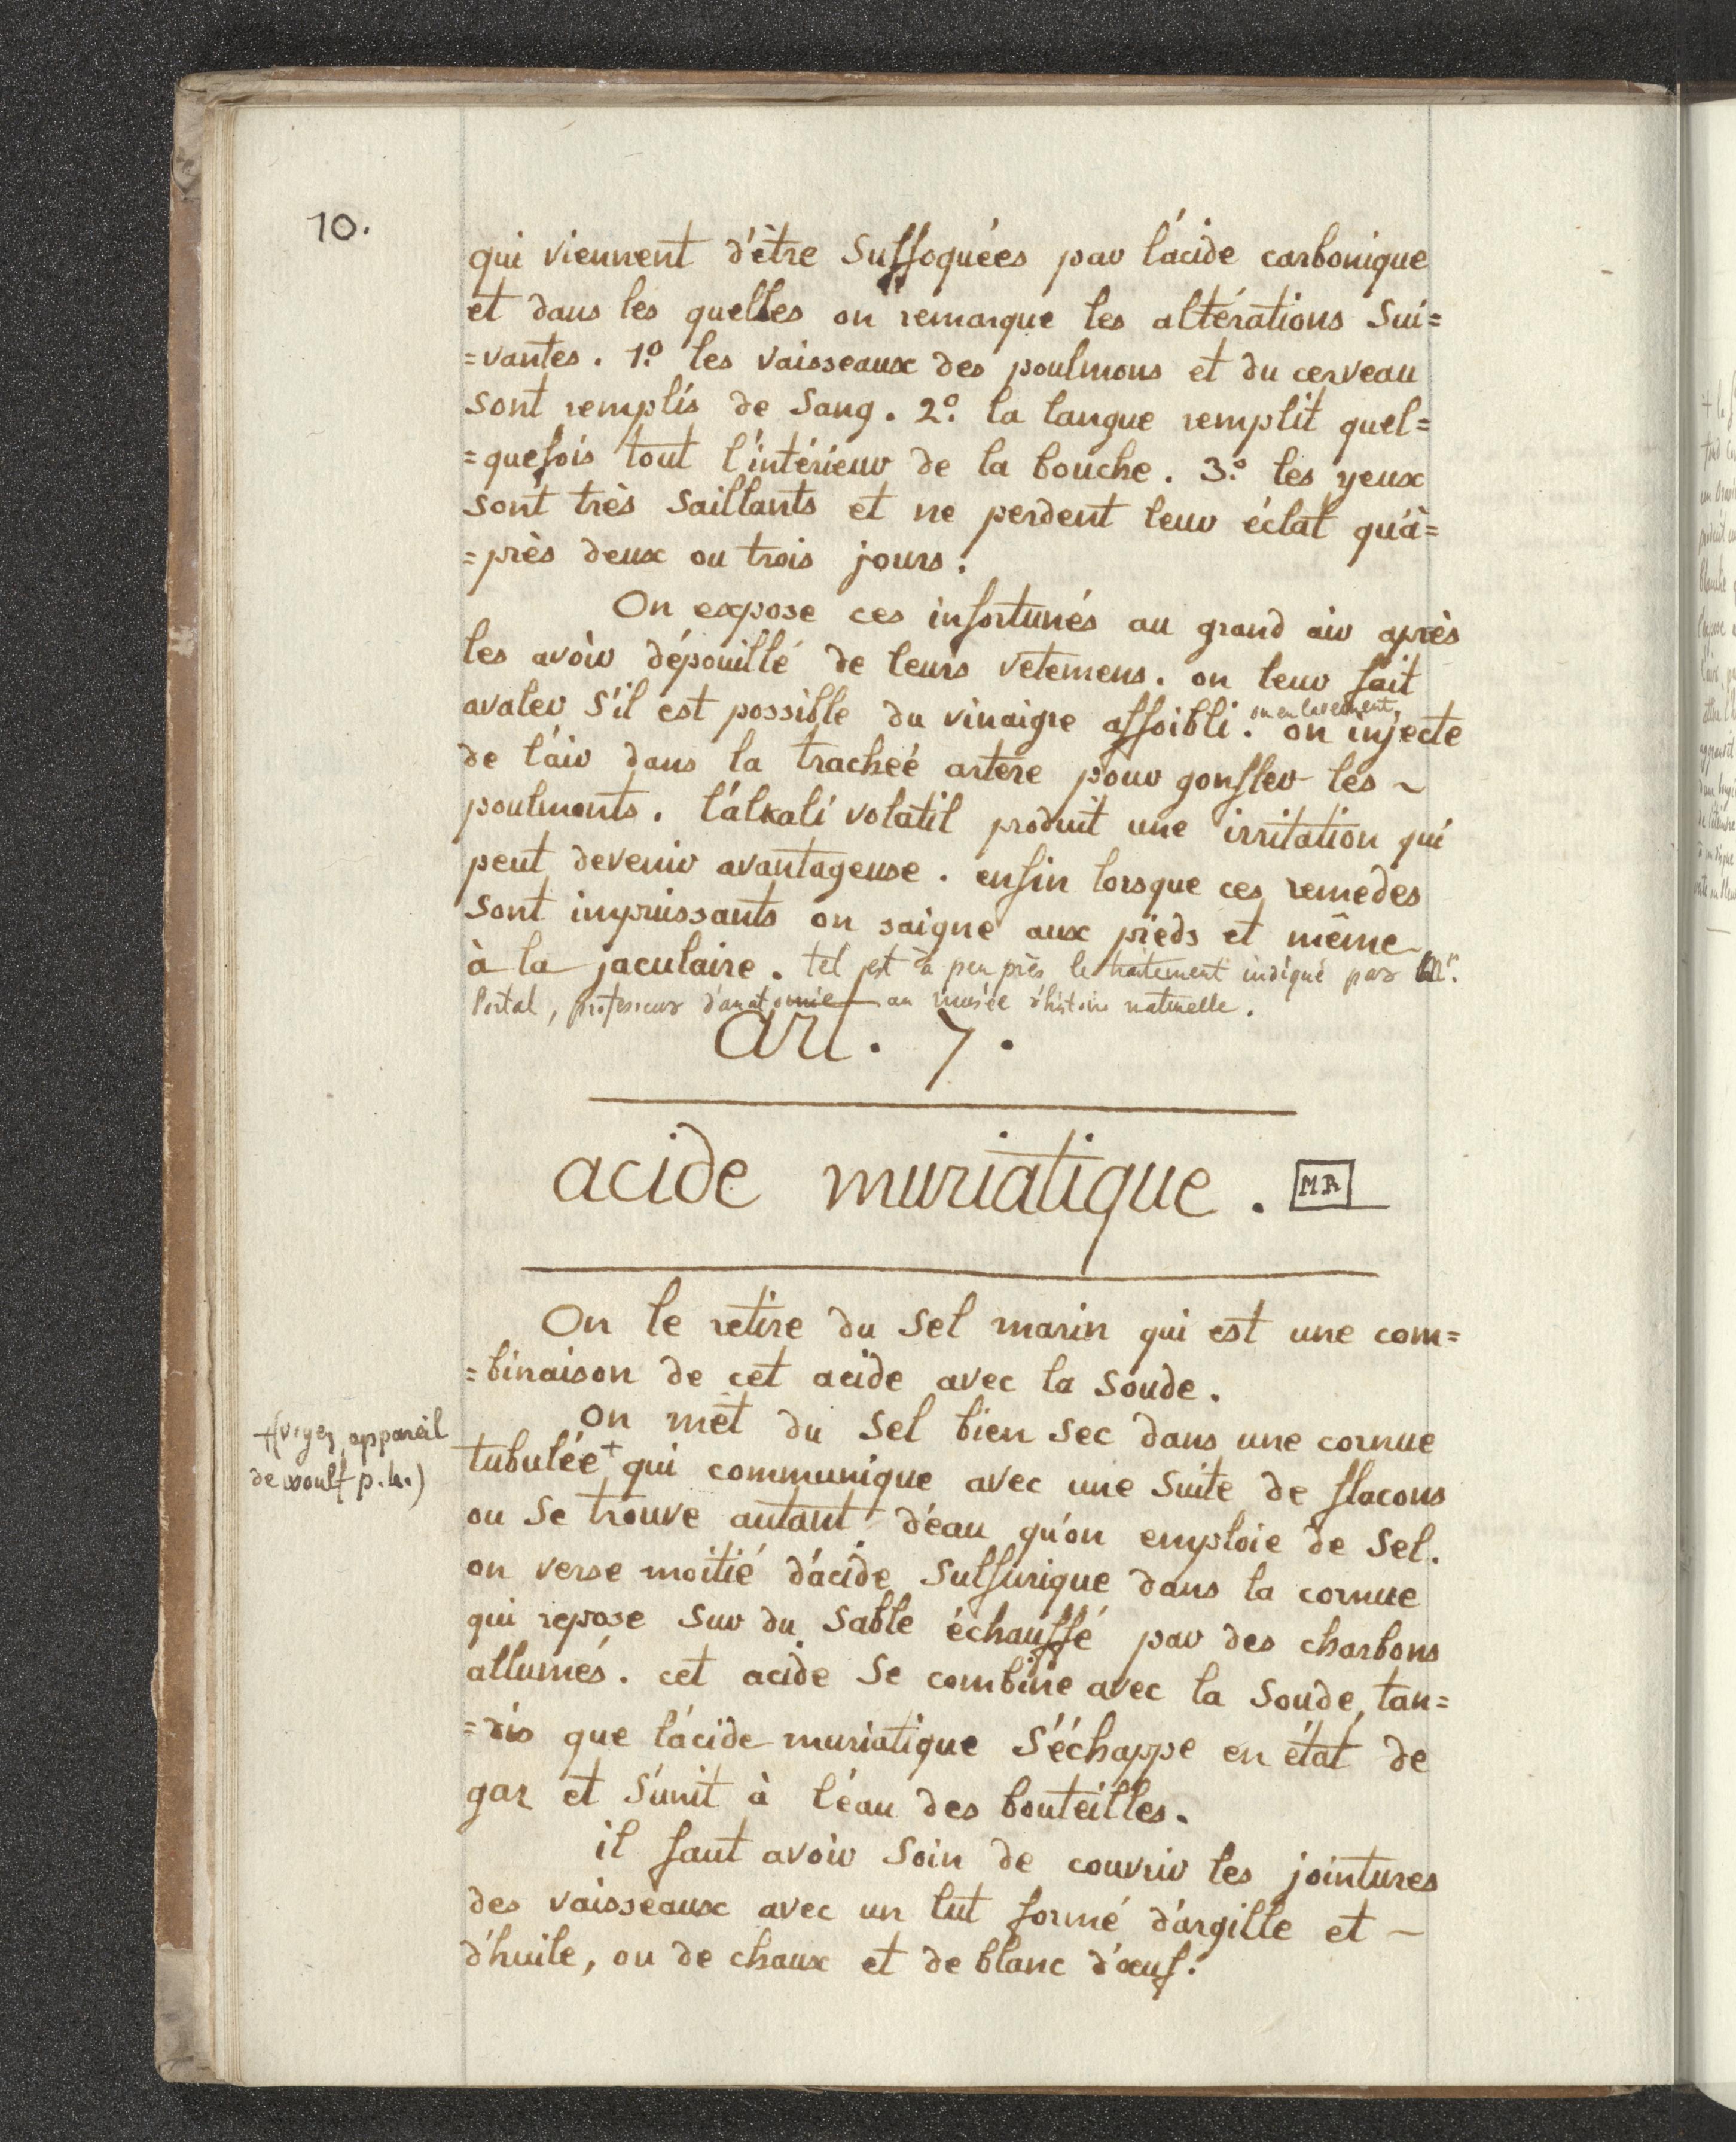 10.
qui viennent d'être Suffoquées par l'acide carbonique
et dans les quelles on remarque les altérations Sui=
=vantes. 1.º les vaisseaux des poulmons et du cerveau
sont remplis de Sang. 2.º la langue remplit quel=
=quefois tout l'intérieur de la bouche. 3.º les yeux
sont très Saillants et ne perdent leur éclat qu'à=
=près deux ou trois jours.
On expose ces infortunés au grand air après
les avoir dépouillé de leurs vetemens. on leur fait
avaler S'il est possible du vinaigre affoibli. on injecte
ou en lavement,
de l'air dans la trachéé artere pour gonfler les ~
poulmonts. l'alkali volatil produit une irritation qui
peut devenir avantageuse. enfin lorsque ces remedes
Sont impuissants on saigne aux pieds et même
à la jaculaire. tel est à peu près le traitement indiqué par Mr.
Portal, professeur d'anatomie au musée d'histoire naturelle.
art. 7.
acide muriatique. MR
On le retire du Sel marin qui est une com=
=binaison de cet acide avec la Soude.
On met du Sel bien Sec dans une cornue
+(voyez appareil
de woulf p. h.)
tubulée+ qui communique avec une Suite de flacons
ou Se trouve autant d'eau qu'on emploie de Sel.
on verse moitié d'acide Sulfurique dans la cornue
qui repose Sur du Sable échauffé par des charbons
allumés. cet acide Se combine avec la Soude, tan=
=dis que l'acide muriatique S'échappe en état de
gaz et S'unit à l'eau des bouteilles.
il faut avoir Soin de couvrir les jointures
des vaisseaux avec un lut formé d'argille et ~
d'huile, ou de chaux et de blanc d'œuf.